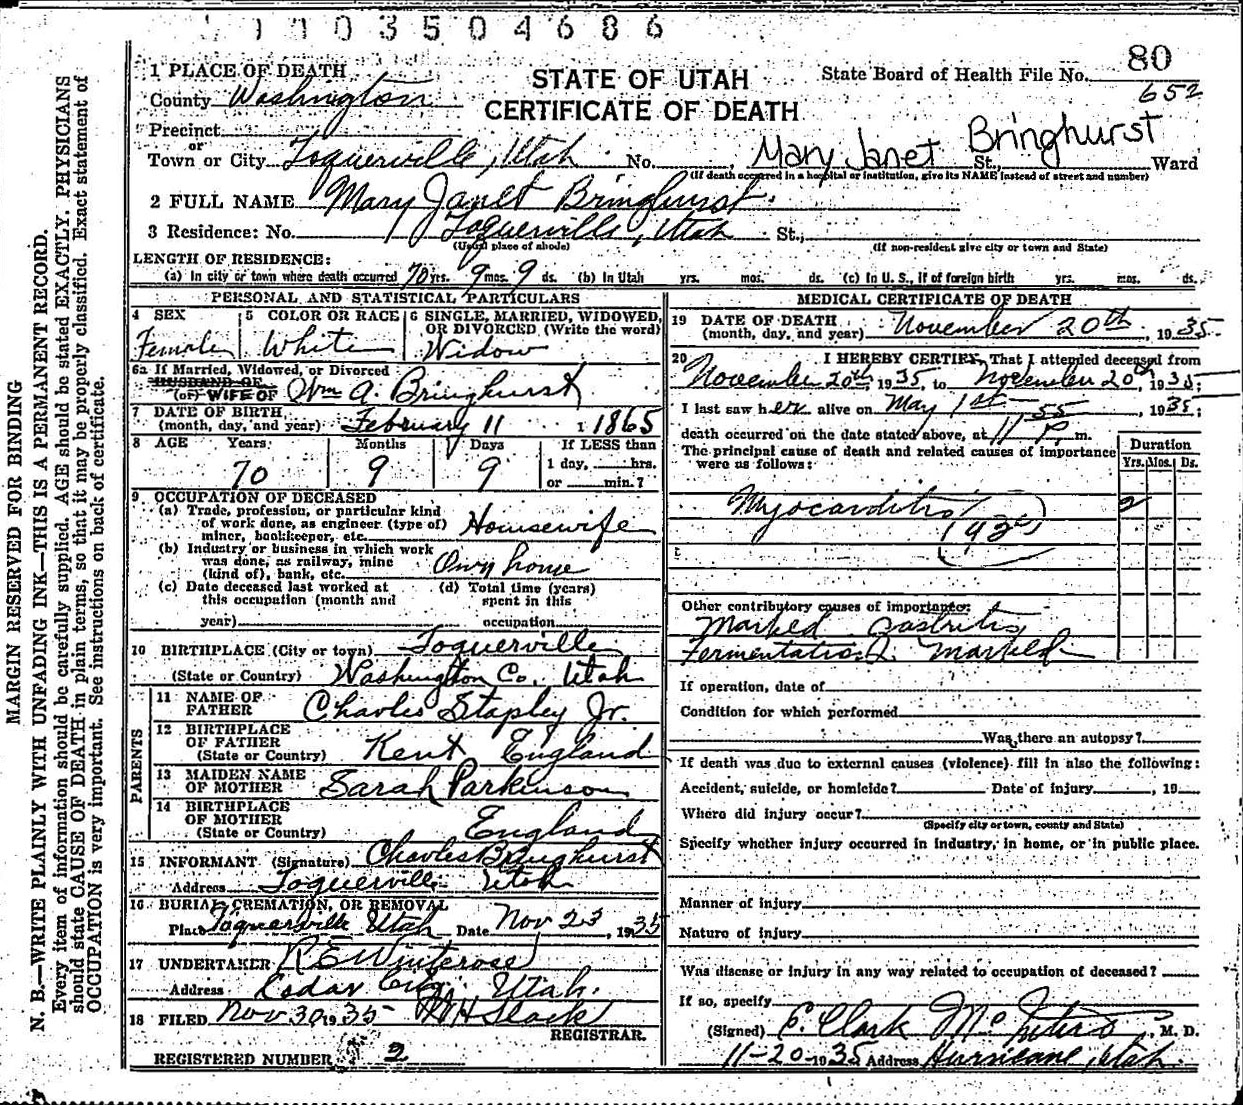 1 1 0 3 5 0 4 6 8 6
80
1 PLACE OF DEATH
STATE OF UTAH
State Board of Health File No.
652
County Washington
CERTIFICATE OF DEATH
Precinct
or
Town or City Toquerville, Utah No. Mary Janet Bringhurst St., Ward
(If death occurred in a hospital or institution, give its NAME instead of street and number)
2 FULL NAME Mary Janet Bringhurst.
3 Residence: No. Toquerville, Utah St.,
(Usual place of abode) (If non-resident give city or town and State)
LENGTH OF RESIDENCE:
(a) In city or town where death occurred 70 yrs. 9 mos. 9 ds. (b) In Utah yrs. mos. ds. (c) In U. S., if of foreign birth yrs. mos. ds.
PERSONAL AND STATISTICAL PARTICULARS
4 SEX 5 COLOR OR RACE 6 SINGLE, MARRIED, WIDOWED,
OR DIVORCED. (Write the word)
Female White Widow
6a If Married, Widowed, or Divorced
HUSBAND OF
(or) WIFE OF Wm A. Bringhurst
7 DATE OF BIRTH
(month, day, and year) February 11 1 1865
8 AGE Years Months Days If LESS than
70 9 9 1 day, hrs.
or min.?
9. OCCUPATION OF DECEASED
(a) Trade, profession, or particular kind
of work done, as engineer (type of)
miner, bookkeeper, etc. Housewife
(b) Industry or business in which work
was done, as railway, mine
(kind of), bank, etc. Own home
(c) Date deceased last worked at (d) Total time (years)
this occupation (month and spent in this
year) occupation
10 BIRTHPLACE (City or town) Toquerville
(State or Country) Washington Co. Utah
PARENTS
11 NAME OF
FATHER Charles Stapley Jr.
12 BIRTHPLACE
OF FATHER
(State or Country) Kent England
13 MAIDEN NAME
OF MOTHER Sarah Parkinson
14 BIRTHPLACE
OF MOTHER
(State or Country) England
15 INFORMANT (Signature) Charles Bringhurst
Address Toquerville Utah
16 BURIAL, CREMATION, OR REMOVAL
Place Toquerville Utah Date Nov 23, 1935
17 UNDERTAKER R E Winterose
Address Cedar City. Utah.
18 FILED Nov 30 1935 W H Slack
REGISTRAR.
REGISTERED NUMBER 2
MEDICAL CERTIFICATE OF DEATH
19 DATE OF DEATH
(month, day, and year) November 20th, 1935
20 I HEREBY CERTIFY, That I attended deceased from
November 20th 1935, to November 20th, 1935;
I last saw her alive on May 1st, 1935;
death occurred on the date stated above, at 11 55 P. m.
The principal cause of death and related causes of importance
were as follows:
Duration
Yrs. Mos. Ds.
Myocarditis 2
Other contributory causes of importance:
Marked Gastritis
Fermentation Marked
If operation, date of
Condition for which performed
Was there an autopsy?
If death was due to external causes (violence) fill in also the following:
Accident, suicide, or homicide? Date of injury, 19
Where did injury occur?
(Specify city or town, county and State)
Specify whether injury occurred in industry, in home, or in public place.
Manner of injury
Nature of injury
Was disease or injury in any way related to occupation of deceased?
If so, specify
(Signed) Clark McIntire, M. D.
11-20-1935 Address Hurricane, Utah.
MARGIN RESERVED FOR BINDING
N. B.—WRITE PLAINLY WITH UNFADING INK—THIS IS A PERMANENT RECORD.
Every item of information should be carefully supplied. AGE should be stated EXACTLY. PHYSICIANS
should state CAUSE OF DEATH in plain terms, so that it may be properly classified. Exact statement of
OCCUPATION is very important. See instructions on back of certificate.